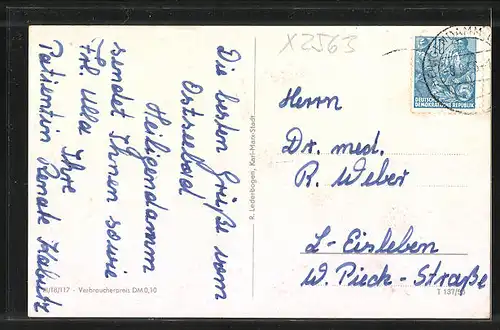 X2563
Die besten Grüße vom
Ostseebad
Heiligendamm
sendet Ihnen sowie
Frl. Ulla Ihre
Patientin Renate
R. Lederbogen, Karl-Marx-Stadt
DEUTSCHE
DEMOKRATISCHE REPUBLIK
Herrn
Dr. med.
R. Weber
L.-Eisleben
W. Pieck-Straße
III/18/117 - Verbraucherpreis DM 0,10
T 137/55